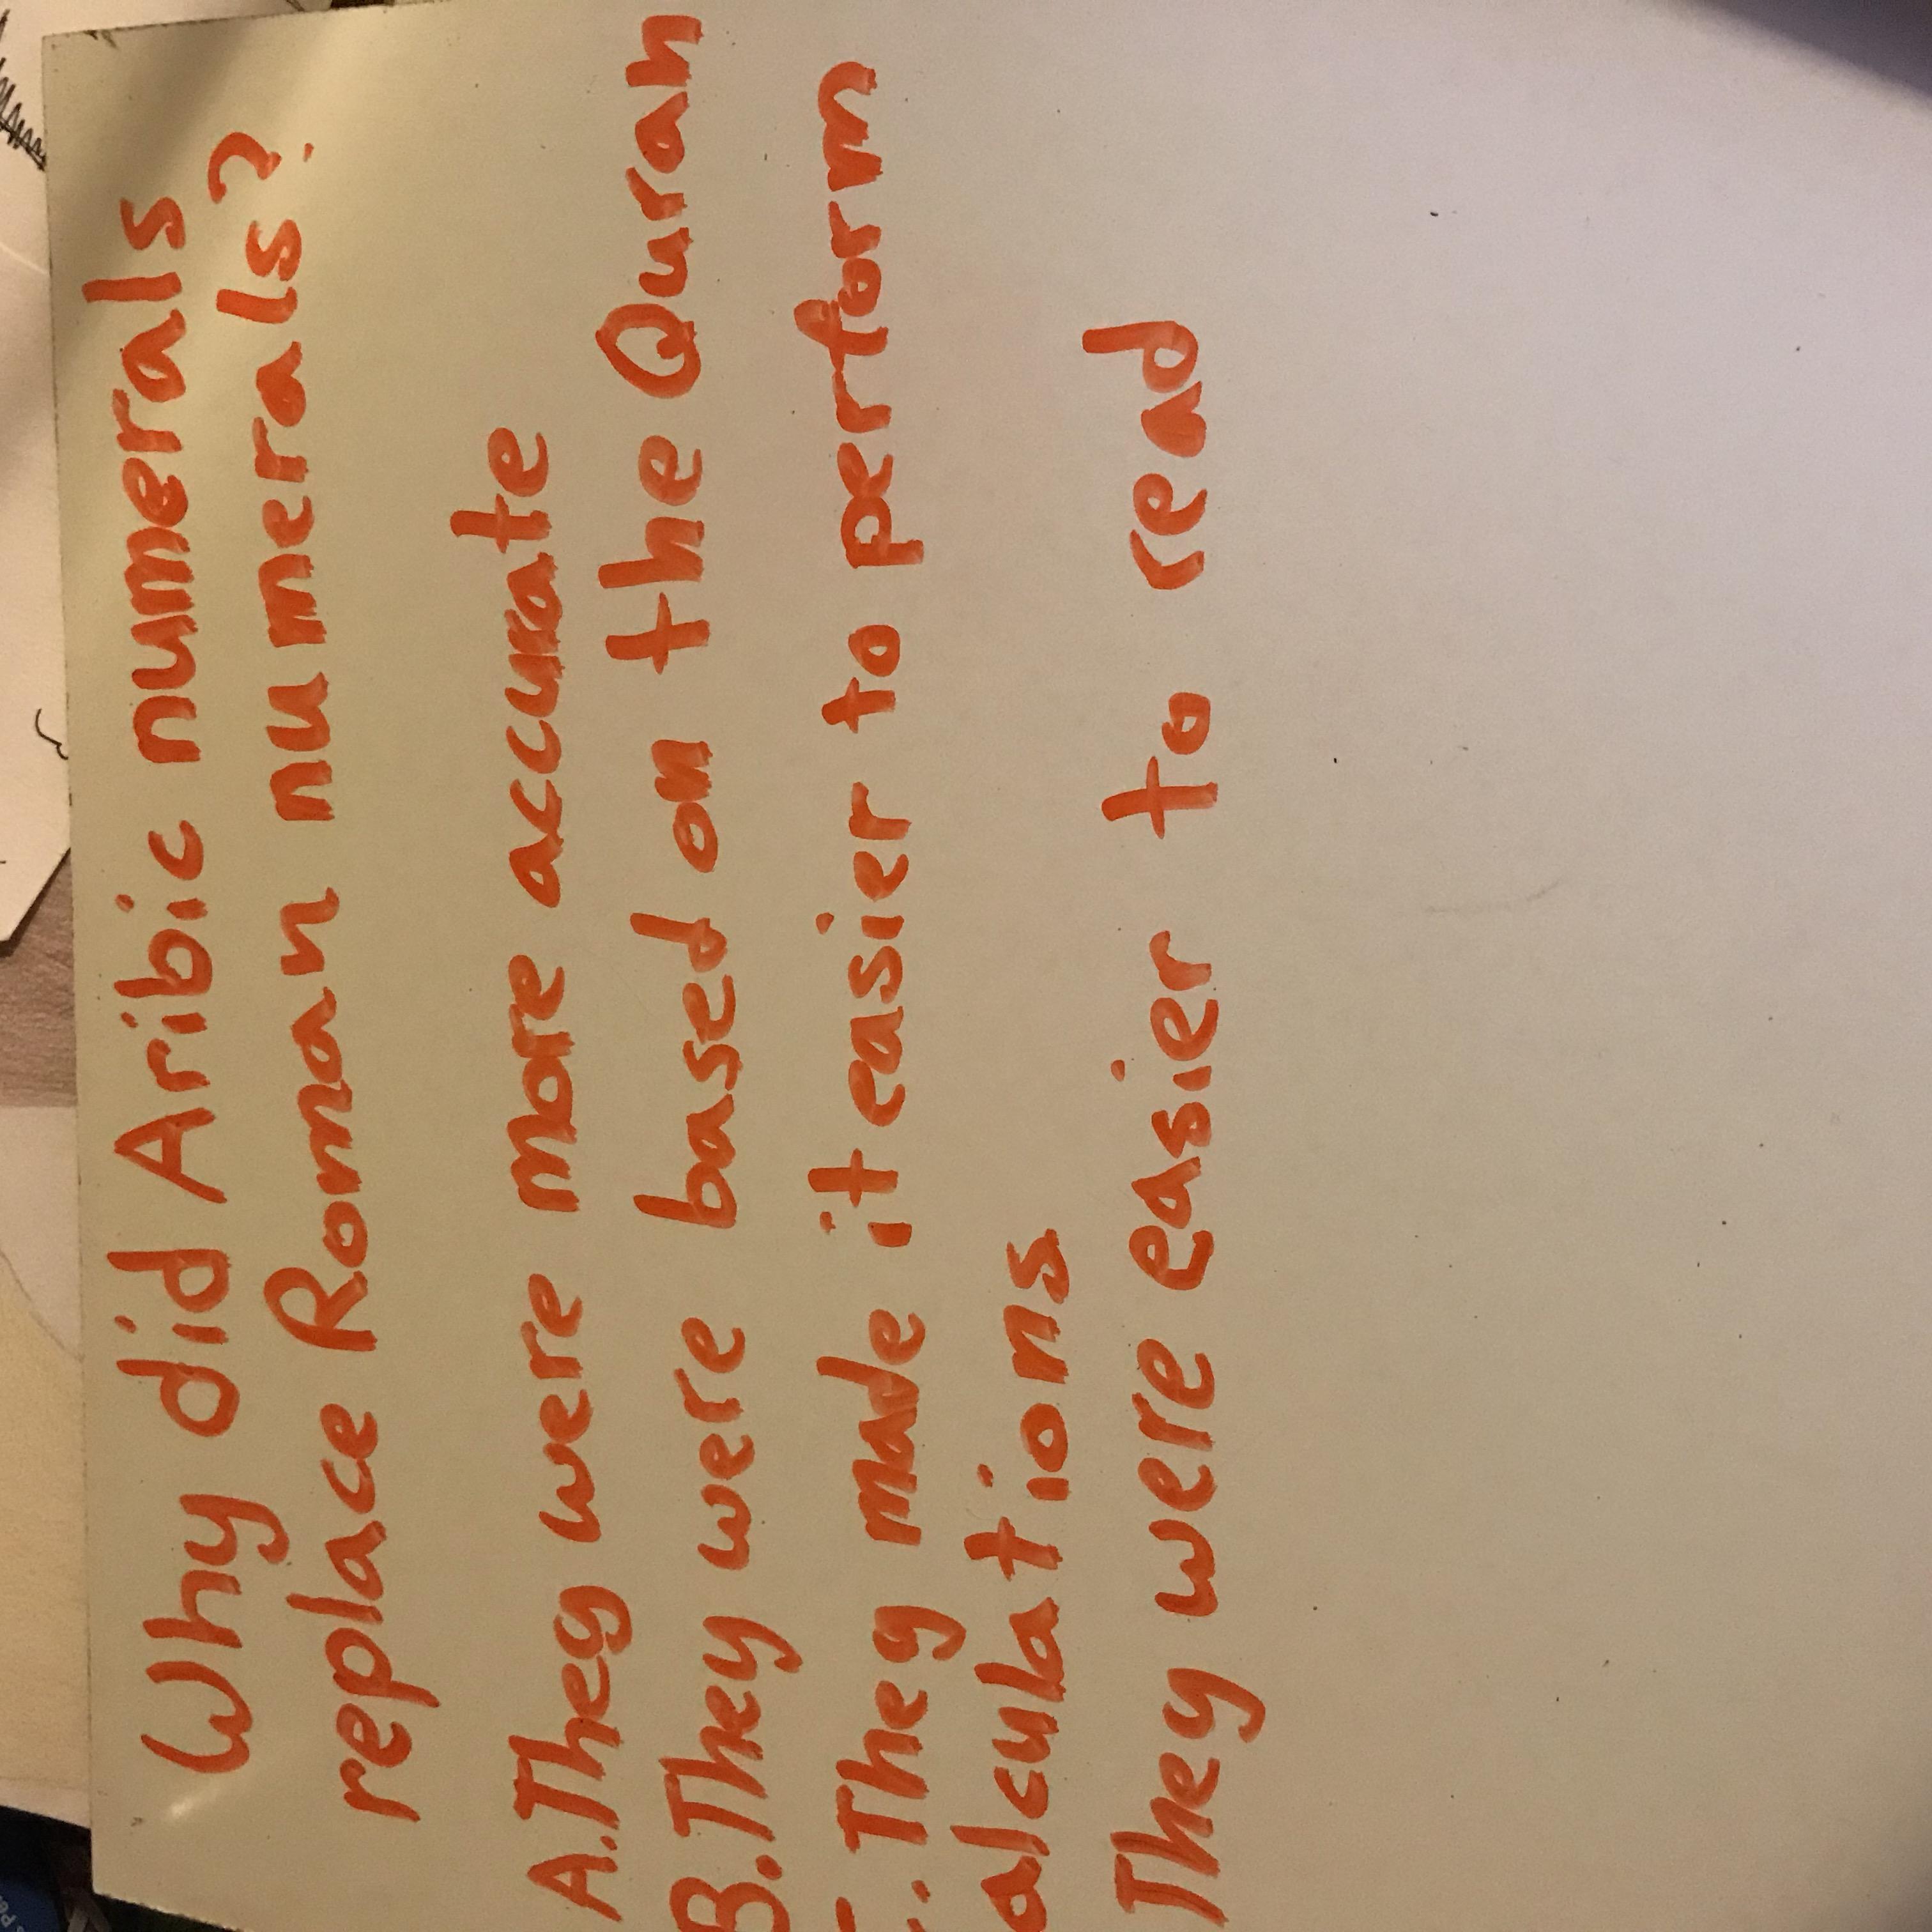 Why did Aribic numerals
replace Roman numerals?
A. They were more accurate
B. They were based on the Quran
They made it easier to perform
alculations
They were easier to read